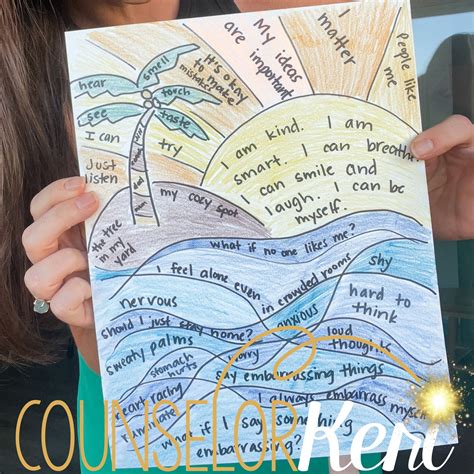 hear
smell
see
touch
taste
I can
try
Just
listen
It's okay
to make
mistakes
My ideas
are important
I
matter
People like
me
I am kind. I am
smart. I can breathe.
I can smile and
laugh. I can be
myself.
the tree
in my
yard
my cozy spot
what if no one likes me?
I feel alone even
in crowded rooms
shy
nervous
anxious
hard to
think
should I just stay home?
worry
loud
thoughts
sweaty palms
stomach
hurts
say embarrassing things
heart racing
I always embarrass myself
ruminate
what if I say something
embarrassing?
COUNSELOR Keri